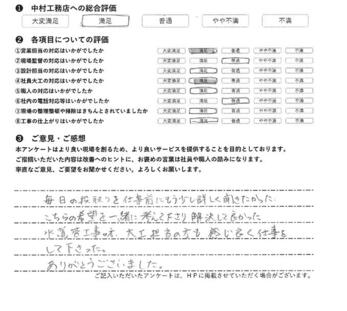 ❶ 中村工務店への総合評価
大変満足 満足 普通 やや不満 不満
❷ 各項目についての評価
①営業担当の対応はいかがでしたか 大変満足 満足 普通 やや不満 不満
②現場監督の対応はいかがでしたか 大変満足 満足 普通 やや不満 不満
③設計担当の対応はいかがでしたか 大変満足 満足 普通 やや不満 不満
④社員大工の対応はいかがでしたか 大変満足 満足 普通 やや不満 不満
⑤職人の対応はいかがでしたか 大変満足 満足 普通 やや不満 不満
⑥社内の電話対応等はいかがでしたか 大変満足 満足 普通 やや不満 不満
⑦現場の整理整頓や掃除はきちんとされていましたか 大変満足 満足 普通 やや不満 不満
⑧工事の仕上がりはいかがでしたか 大変満足 満足 普通 やや不満 不満
❸ ご意見・ご感想
本アンケートはより良い現場を創るため、より良いサービスを提供することを目的としております。
ご指摘いただいた内容は改善へのヒントに、お褒めの言葉は社員や職人の励みになります。
率直なご意見、ご要望をお聞かせください。よろしくお願いします。
毎日の段取りを仕事前にもう少し詳しく聞きたかった
こちらの希望を一緒に考えて下さり解決して良かった
水道管工事の方、大工担当の方も感じ良く仕事を
して下さった。
ありがとうございました。
ご記入いただいたアンケートは、HPに掲載させていただく場合がございます。